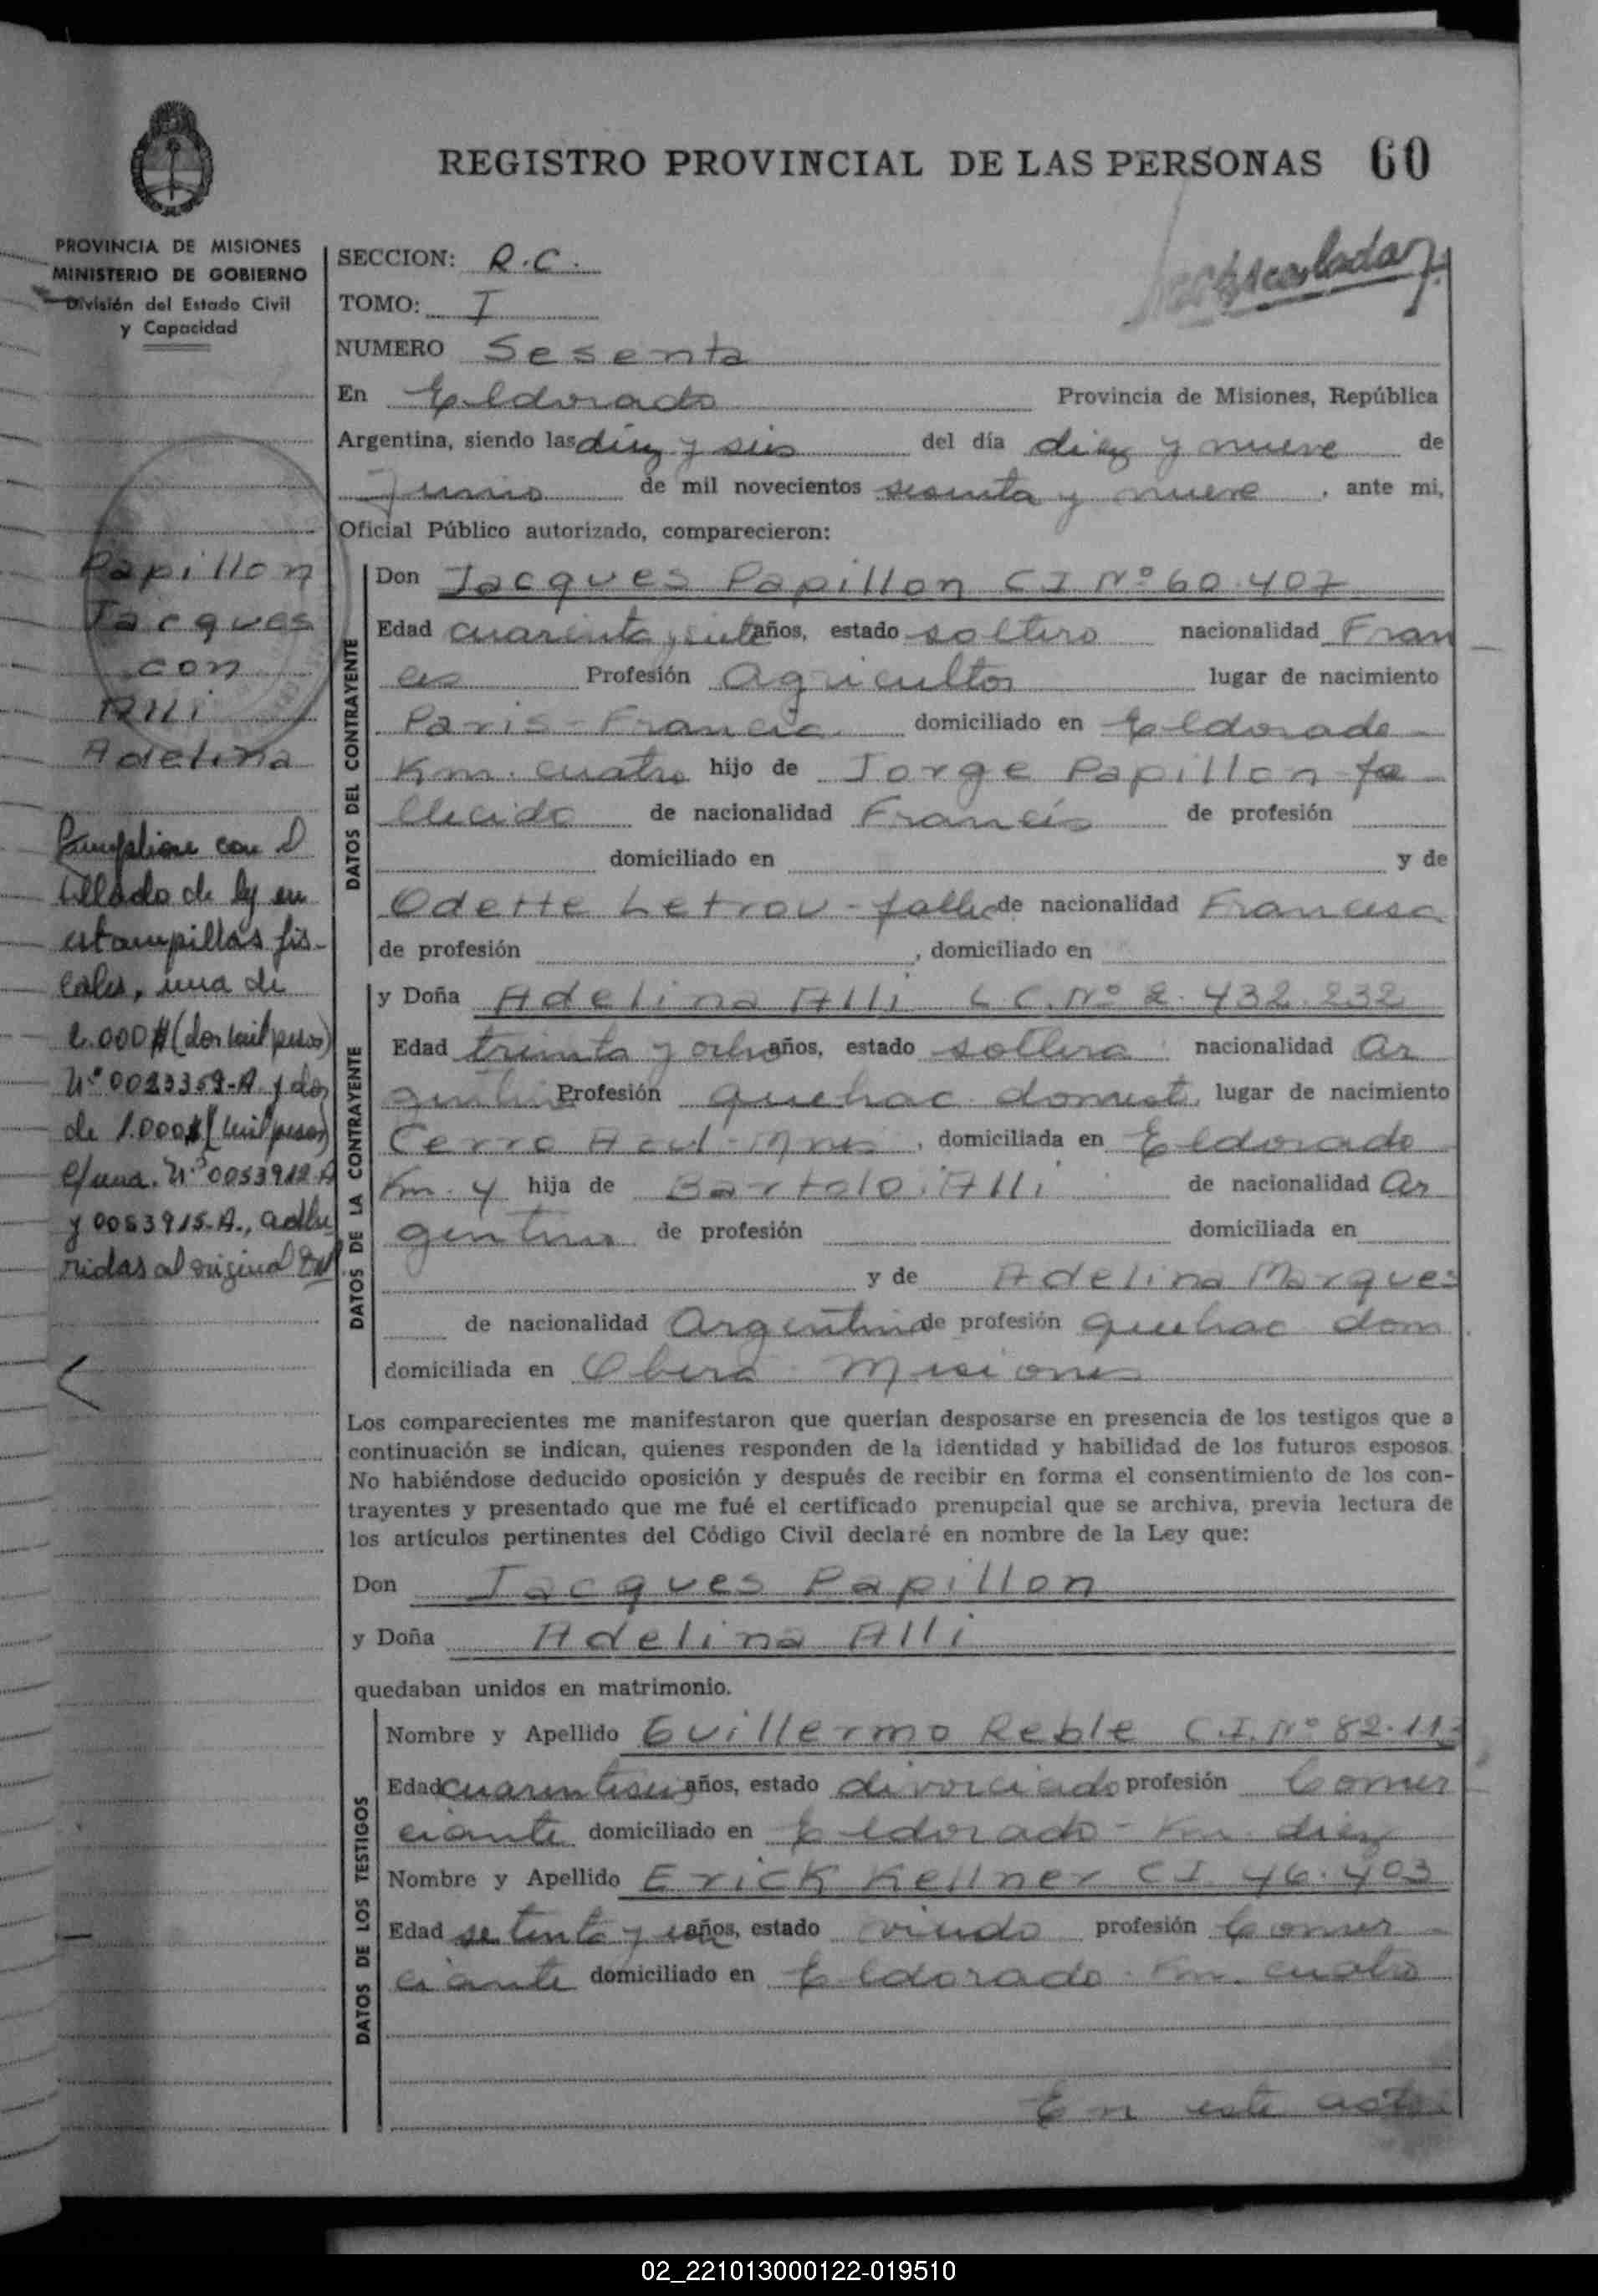 REGISTRO PROVINCIAL DE LAS PERSONAS 60
PROVINCIA DE MISIONES
MINISTERIO DE GOBIERNO
División del Estado Civil
y Capacidad
SECCION: R.C.
TOMO: I
NUMERO Sesenta
En Eldorado Provincia de Misiones, República
Argentina, siendo las diez y seis del día diez y nueve de
Junio de mil novecientos sesenta y nueve, ante mi,
Oficial Público autorizado, comparecieron:
Papillon
Jacques
con
Alli
Adelina
DATOS DEL CONTRAYENTE
Don Jacques Papillon CI Nº 60.407
Edad cuarenta y siete años, estado soltero nacionalidad Fran
ces Profesión Agricultor lugar de nacimiento
Paris - Francia domiciliado en Eldorado
Km. cuatro hijo de Jorge Papillon fa
llecido de nacionalidad Francés de profesión
domiciliado en y de
Odette Letrou - fallec de nacionalidad Francesa
de profesión , domiciliado en
con
sellado de ley en
estampillas fis-
cales, una de
2.000 $ (dos mil pesos)
Nº 0023359-A y dos
de 1.000 $ (mil pesos)
c/una. Nº 0053912-A
y 0053915-A., adhe
ridas al original
DATOS DE LA CONTRAYENTE
y Doña Adelina Alli L.C. Nº 2.432.232
Edad treinta y ocho años, estado soltera nacionalidad Ar
gentina Profesión quehac. domest. lugar de nacimiento
Cerro Azul - Mnes , domiciliada en Eldorado
Km. 4 hija de Bartolo Alli de nacionalidad Ar
gentina de profesión domiciliada en
y de Adelina Marques
de nacionalidad Argentina de profesión quehac dom
domiciliada en Obera Misiones
Los comparecientes me manifestaron que querían desposarse en presencia de los testigos que a
continuación se indican, quienes responden de la identidad y habilidad de los futuros esposos.
No habiéndose deducido oposición y después de recibir en forma el consentimiento de los con-
trayentes y presentado que me fué el certificado prenupcial que se archiva, previa lectura de
los artículos pertinentes del Código Civil declaré en nombre de la Ley que:
Don Jacques Papillon
y Doña Adelina Alli
quedaban unidos en matrimonio.
DATOS DE LOS TESTIGOS
Nombre y Apellido Guillermo Reble C.I. Nº 82.113
Edad cuarentiseis años, estado divorciado profesión Comer
ciante domiciliado en Eldorado - Km. diez
Nombre y Apellido Erick Kellner CI 46.403
Edad setenta y años, estado viudo profesión Comer
ciante domiciliado en Eldorado Km. cuatro
En este acto
02_221013000122-019510